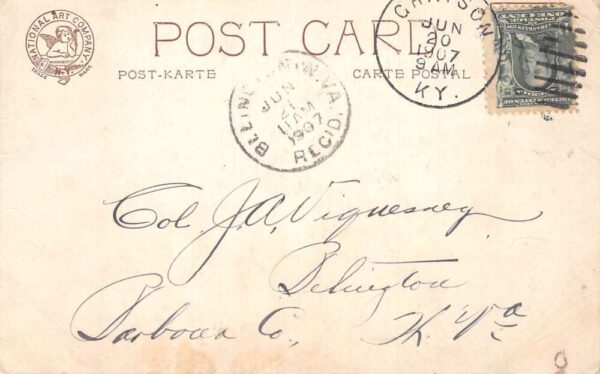 INTERNATIONAL ART COMPANY.
TRADE N.Y. MARK
POST CARD
POST-KARTE
CARTE POSTAL
GRAYSON
JUN
20
1907
9AM
KY.
BELINGTON, W.VA.
JUN
11AM
1907
REC'D.
Col. J. A. Viquesney
Belington
Barbour Co., W. Va